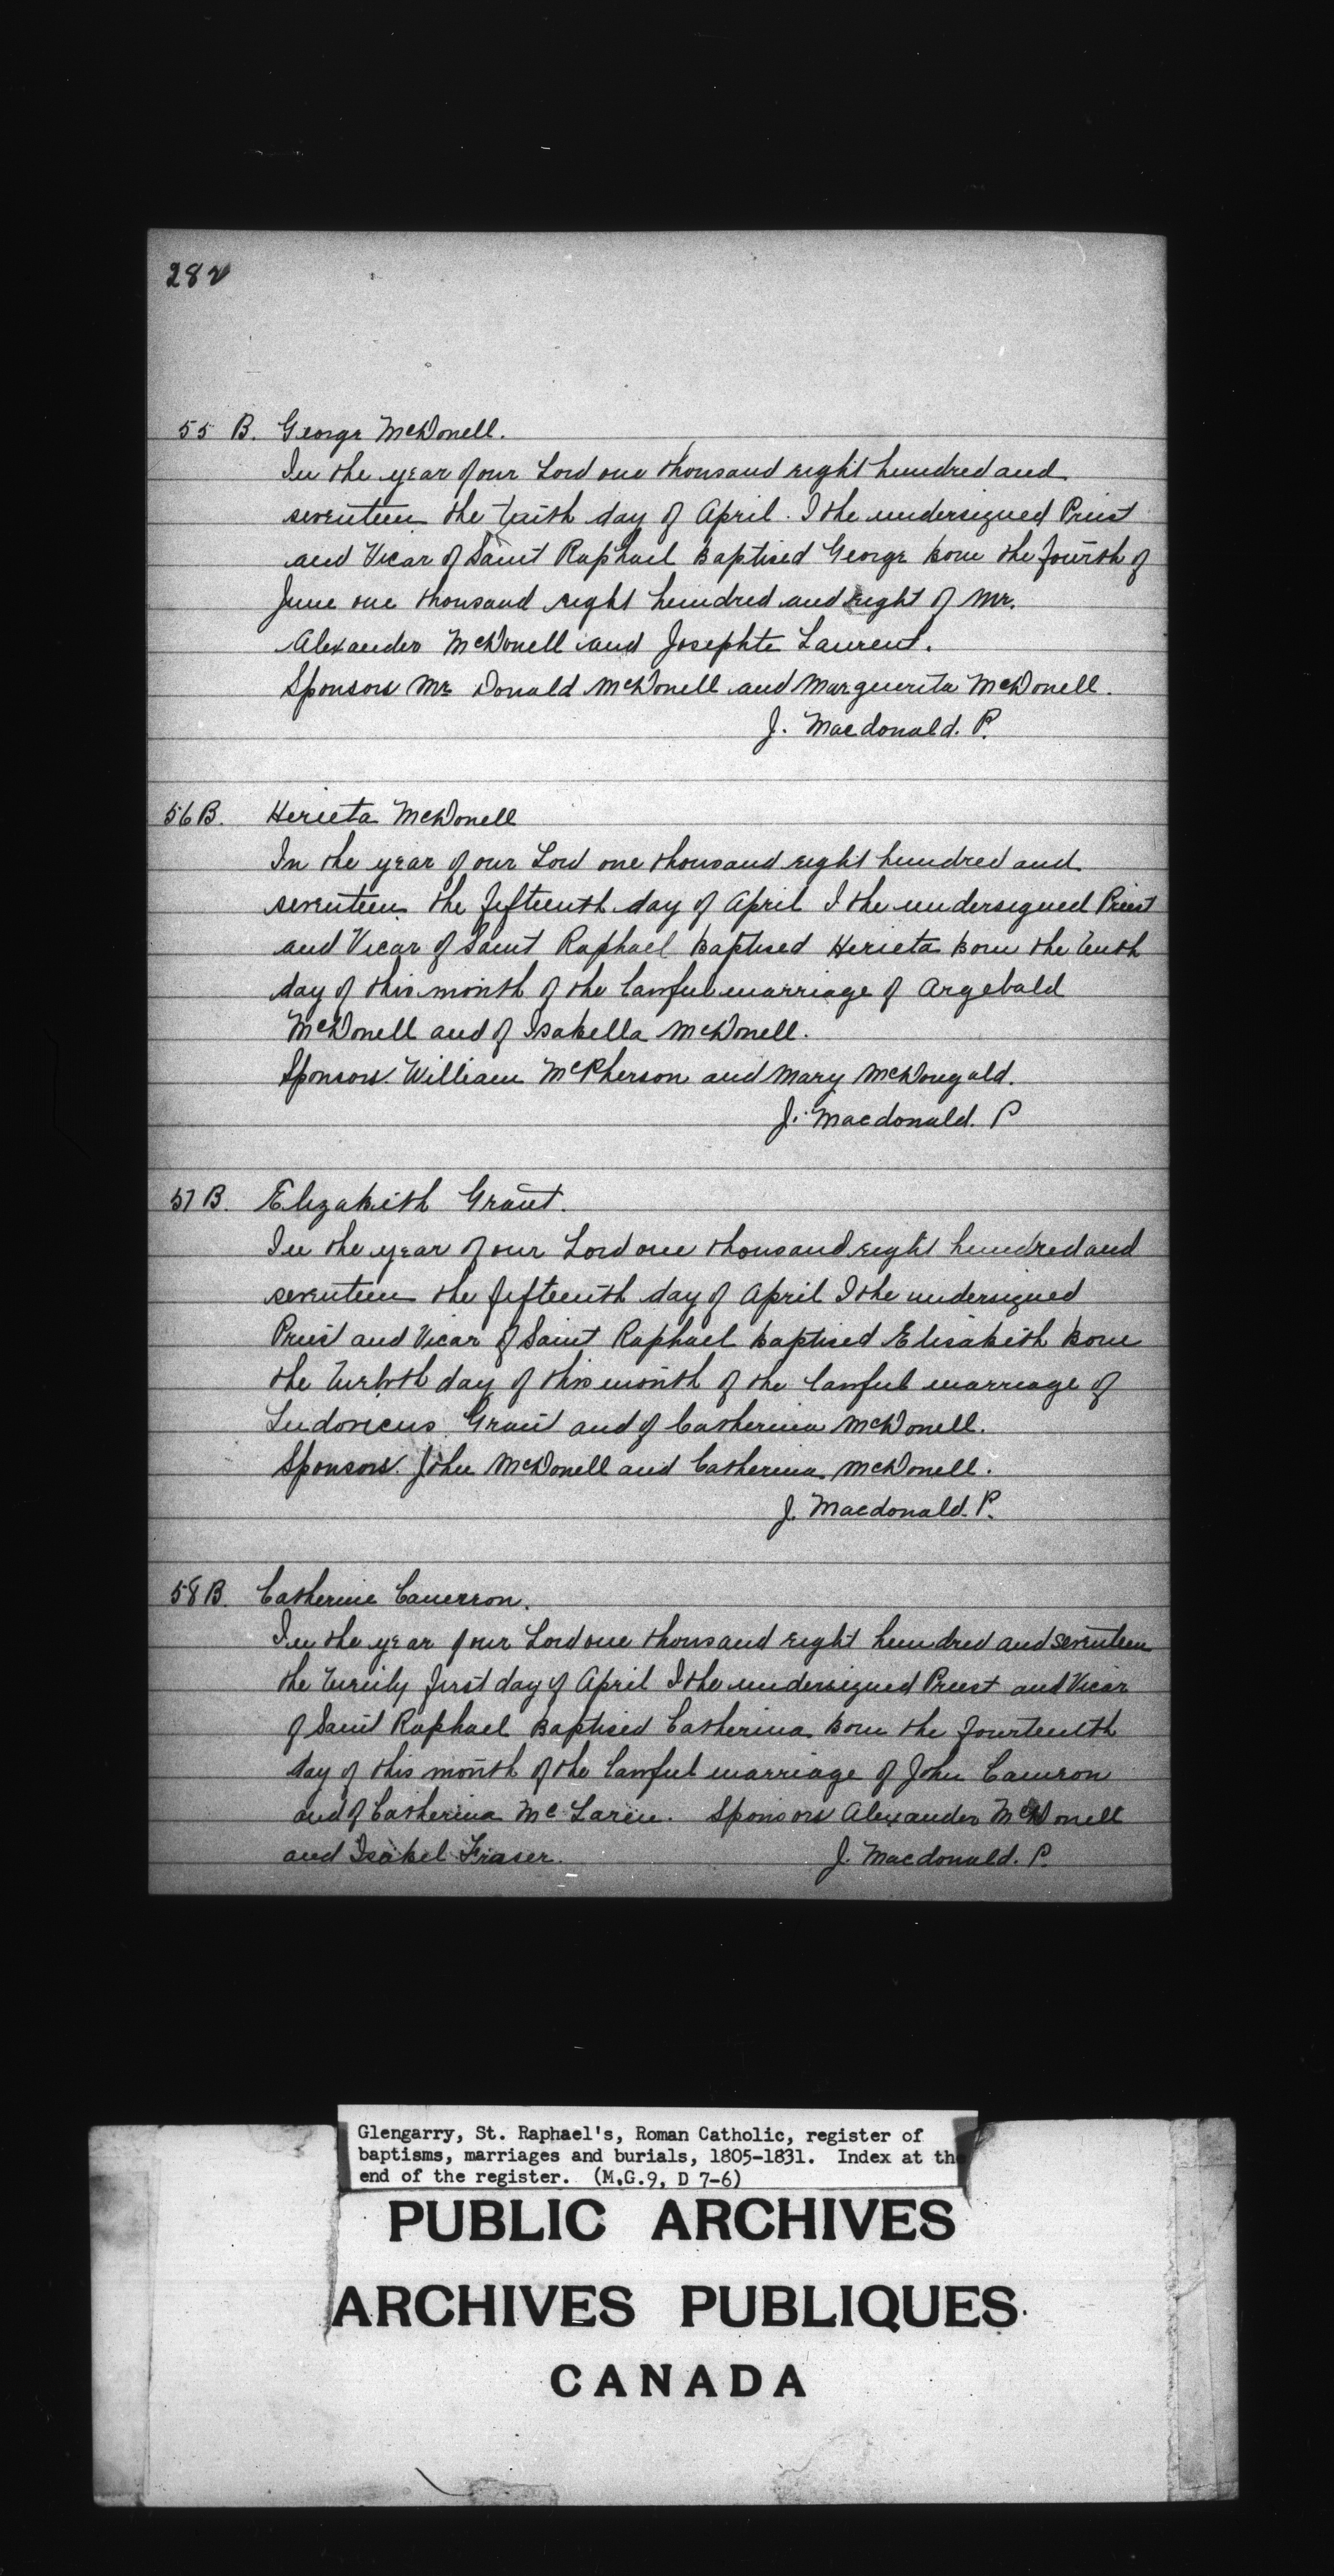 282
55 B. George McDonell.
In the year of our Lord one thousand eight hundred and
seventeen the tenth day of April. I the undersigned Priest
and Vicar of Saint Raphael baptised George born the fourth of
June one thousand eight hundred and eight of Mr.
Alexander McDonell and Josephte Laurent.
Sponsors Mr Donald McDonell and Marguerita McDonell.
J. Macdonald. P.
56 B. Herieta McDonell
In the year of our Lord one thousand eight hundred and
seventeen the fifteenth day of April I the undersigned Priest
and Vicar of Saint Raphael baptised Herieta born the tenth
day of this month of the lawful marriage of Argebald
McDonell and of Isabella McDonell.
Sponsors. William McPherson and Mary McDougald.
J. Macdonald. P
57 B. Elizabeth Grant.
In the year of our Lord one thousand eight hundred and
seventeen the fifteenth day of April I the undersigned
Priest and Vicar of Saint Raphael baptised Elisabeth born
the twelvth day of this month of the lawful marriage of
Ludovicus Grant and of Catherina McDonell.
Sponsors. John McDonell and Catherina McDonell.
J. Macdonald. P.
58 B. Catherine Camerron.
In the year of our Lord one thousand eight hundred and seventeen
the twenty first day of April I the undersigned Priest and Vicar
of Saint Raphael baptised Catherina born the fourteenth
day of this month of the lawful marriage of John Camron
and of Catherina Mc Laren. Sponsors Alexander McDonell
and Isabel Fraser. J. Macdonald. P.
Glengarry, St. Raphael's, Roman Catholic, register of
baptisms, marriages and burials, 1805-1831. Index at the
end of the register. (M.G.9, D 7-6)
PUBLIC ARCHIVES
ARCHIVES PUBLIQUES
CANADA